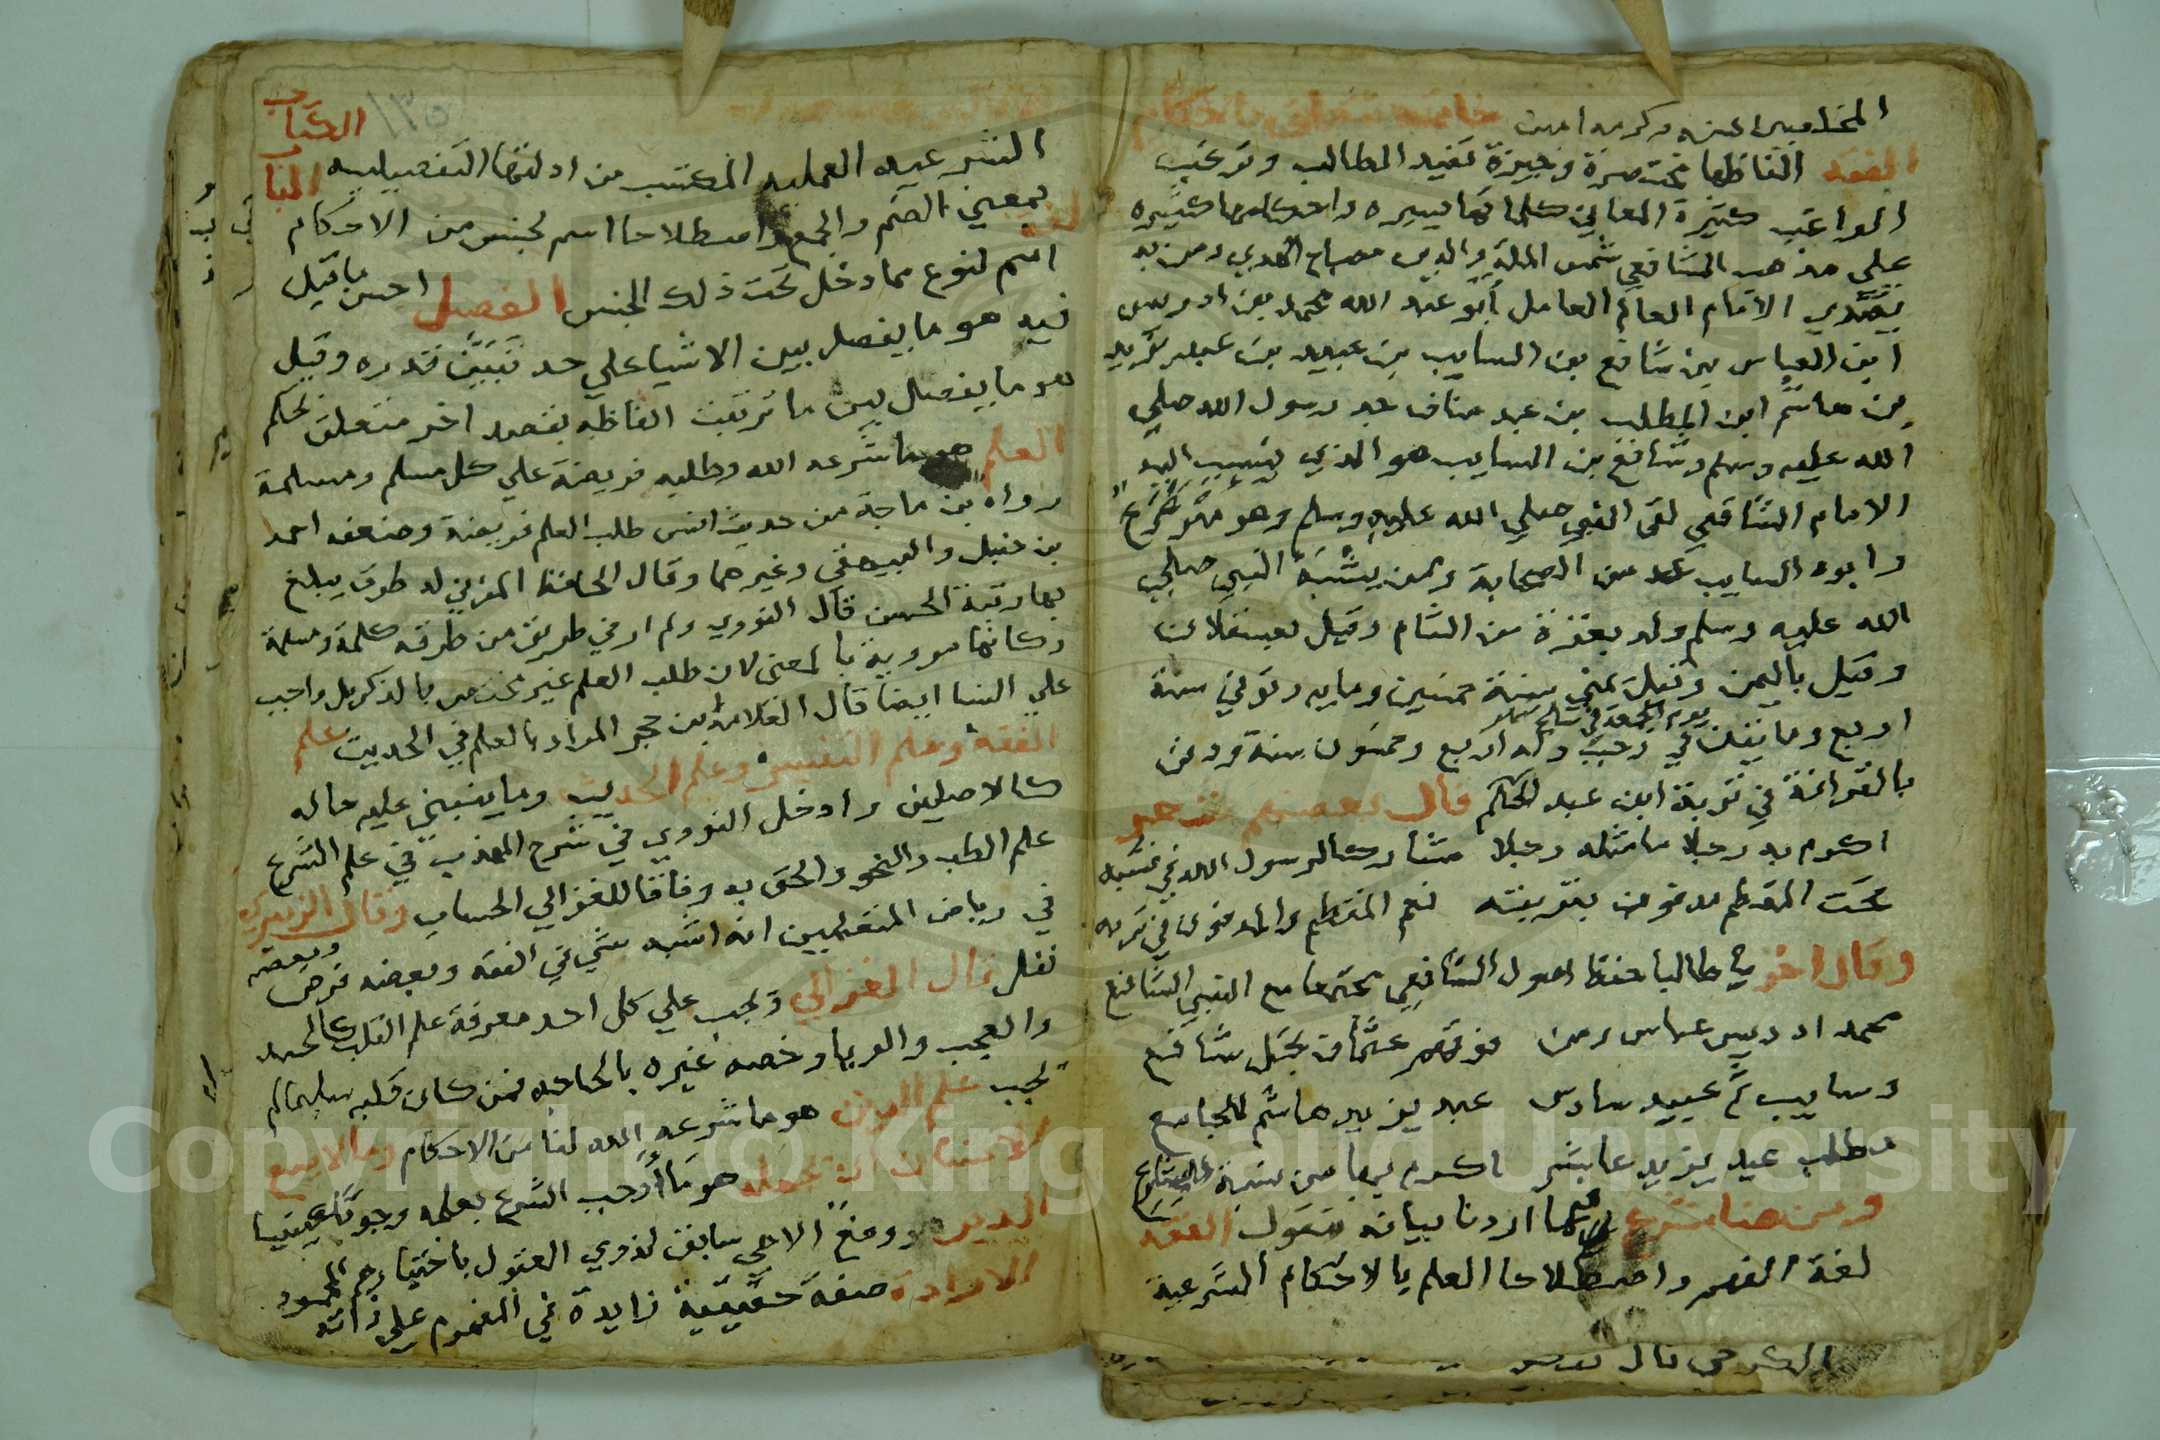 المخلصين اعزه وكرمه امين خاتمه تتعلق باحكام
الفقه الفاظها مختصرة وجيزة تفيد الطالب وترغب
الراغب كثيرة المعاني كلماتها يسيره واحكامها كثيره
على مذهب الشافعي شمس الملة والدين مصباح الهدي ومن به
يقتدي الامام العالم العامل أبو عبد الله محمد بن ادريس
ابن العباس بن شافع بن السايب بن عبيد بن عبد يزيد
بن هاشم ابن المطلب بن عبد مناف جد رسول الله صلى
الله عليه وسلم وشافع بن السايب هو الذي ينسب اليه
الامام الشافعي لقى النبي صلي الله عليه وسلم وهو مترعرع
وابوه السايب عد من الصحابة وممن يشبه النبي صلي
الله عليه وسلم ولد بغزة من الشام وقيل بعسقلان
وقيل باليمن وقيل بمنى سنة خمسين ومايه وتوفي سنة
اربع ومايتين في رجب وله اربع وخمسون سنة ودفن
يوم الجمعة
بالقرافة في تربة ابن عبد الحكم قال بعضهم
اكرم به رجلا مامثله رجلا مشاركا لرسول الله في نسبه
تحت المقطم مدفون بتربته نعم المقطم والمدفون في تربه
وقال اخر يا طالبا حفظ اصول الشافعي مجتمعا مع النبي الشافع
محمد ادريس عباس ومن فوقهم عثمان بجل شافع
وسايب ثم عبيد سادس عبد يزيد هاشم الجامع
مطلب عبد يزيد عاشر اكرم بها من نسبة
ومن هنا نشرع فيما اردنا بيانه فنقول الفقه
لغة الفهم واصطلاحا العلم بالاحكام الشرعية
الكرخي قال بعض
الشرعيه العمليه المكتسب من ادلتها التفصيليه الكتاب
بمعني الضم والجمع واصطلاحا اسم لجنس من الاحكام الباب
اسم لنوع مما دخل تحت ذلك الجنس الفصل احسن ما قيل
فيه هو ما يفصل بين الاشيا علي حد تبين قدره وقيل
هو ما يفصل بين ما ترتبت الفاظه بقصد اخر متعلق بحكم
العلم هو ما شرعه الله وطلبه فريضة علي كل مسلم ومسلمة
رواه بن ماجة من حديث انس طلب العلم فريضة وضعفه احمد
بن حنبل والبيهقي وغيرهما وقال الحافظ المزني له طرق يبلغ
بها رتبة الحسن قال النووي ولم ار في طريق من طرقه كلمة ومسلمة
وكانها مروية بالمعنى لان طلب العلم غير مختص بالذكر بل واجب
علي النسا ايضا قال العلامة بن حجر المراد بالعلم في الحديث علم
الفقه وعلم التفسير وعلم الحديث وما ينبني عليه ماله
كالاصلين وادخل النووي في شرح المهذب في علم الشرع
علم الطب والنحو والحق به وفاقا للغزالي الحساب وقال الزبيري
في رياض المتعلمين انه اشبه شي في الفقه وبعضه فرض وبعضه
نفل قال الغزالي ويجب علي كل احد معرفة علم القلب كالحسد
والعجب والريا وخصه غيره بالحاجه فمن كان قلبه سليما لم
يجب علم الدين هو ما شرعه الله لنا من الاحكام ومالا يسع
الانسان جهله هو ما أوجب الشرع بعلمه وجوبا عينيا
الدين ووضع الاهي سابق لذوي العقول باختيارهم المحمود
الارادة صفة حقيقية زايدة في المفهوم على ذاته